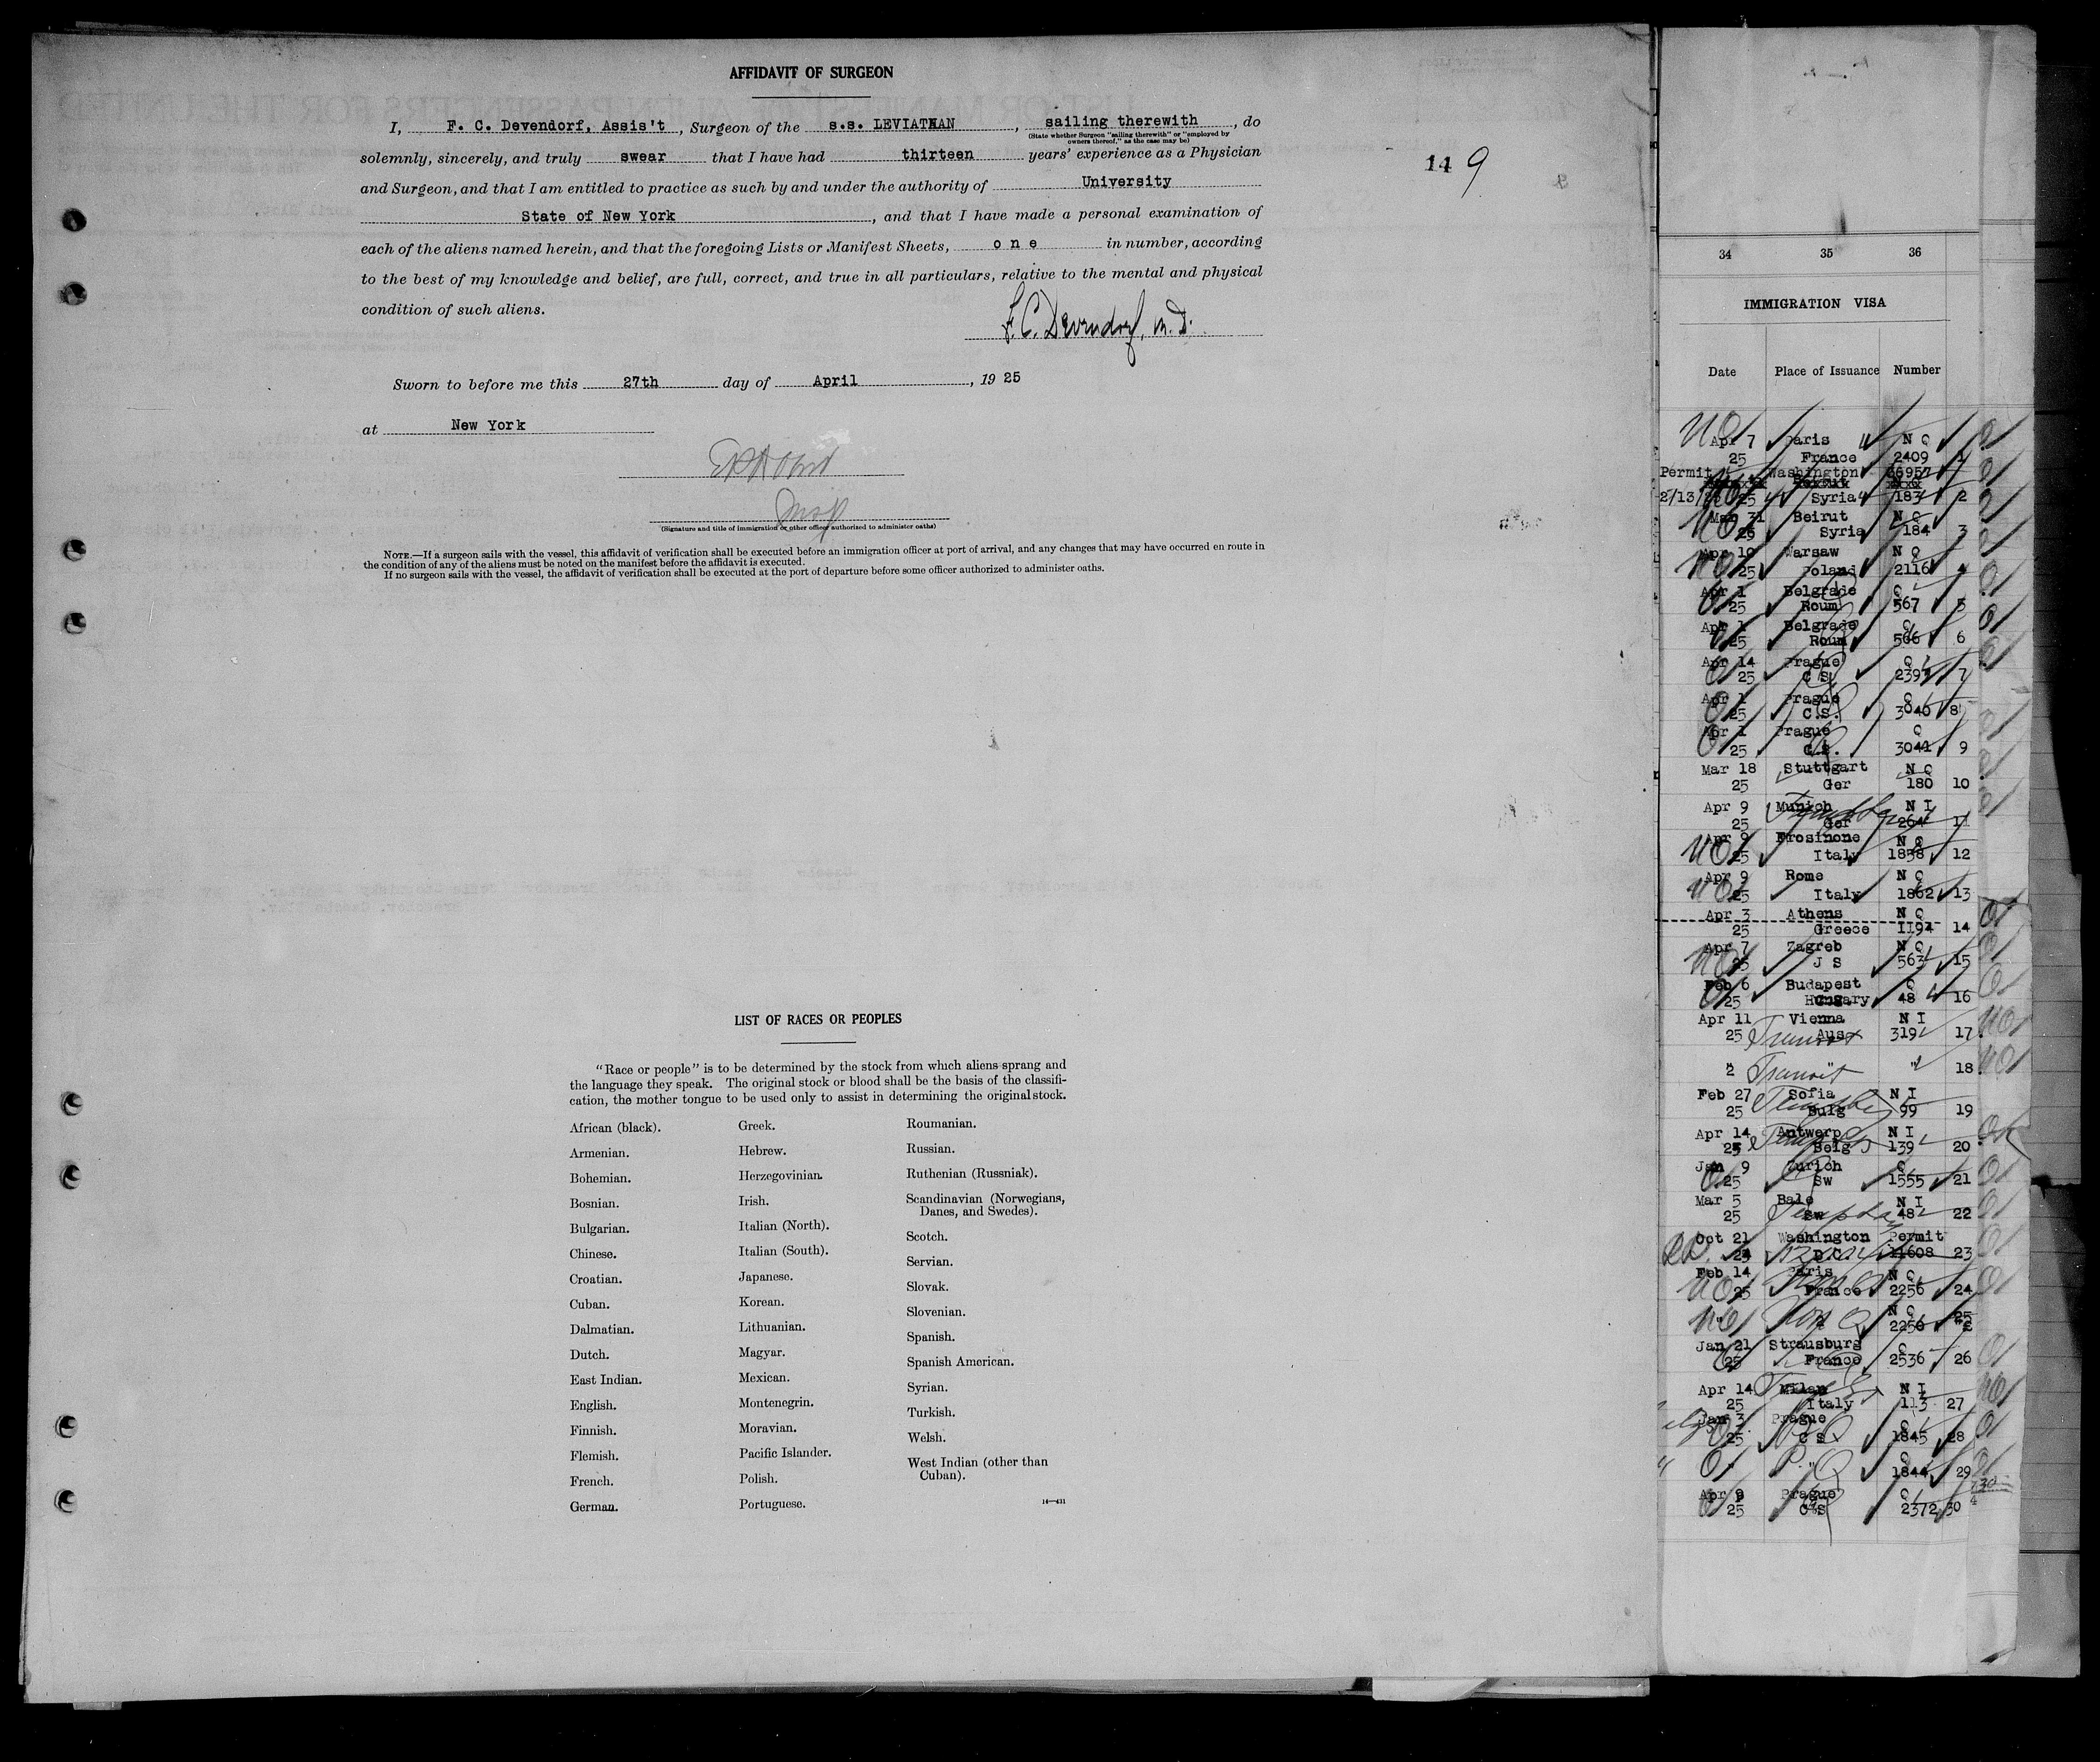 AFFIDAVIT OF SURGEON
I, F. C. Devendorf, Assis't, Surgeon of the s.s. LEVIATHAN, sailing therewith, do
(State whether Surgeon "sailing therewith" or "employed by
owners thereof," as the case may be)
solemnly, sincerely, and truly swear that I have had thirteen years' experience as a Physician
and Surgeon, and that I am entitled to practice as such by and under the authority of University
State of New York, and that I have made a personal examination of
each of the aliens named herein, and that the foregoing Lists or Manifest Sheets, one in number, according
to the best of my knowledge and belief, are full, correct, and true in all particulars, relative to the mental and physical
condition of such aliens.
F. C. Devendorf, M. D.
Sworn to before me this 27th day of April, 19 25
at New York
(Signature and title of immigration or other officer authorized to administer oaths)
NOTE.—If a surgeon sails with the vessel, this affidavit of verification shall be executed before an immigration officer at port of arrival, and any changes that may have occurred en route in
the condition of any of the aliens must be noted on the manifest before the affidavit is executed.
If no surgeon sails with the vessel, the affidavit of verification shall be executed at the port of departure before some officer authorized to administer oaths.
14 9
LIST OF RACES OR PEOPLES
"Race or people" is to be determined by the stock from which aliens sprang and
the language they speak. The original stock or blood shall be the basis of the classifi-
cation, the mother tongue to be used only to assist in determining the original stock.
African (black).
Armenian.
Bohemian.
Bosnian.
Bulgarian.
Chinese.
Croatian.
Cuban.
Dalmatian.
Dutch.
East Indian.
English.
Finnish.
Flemish.
French.
German.
Greek.
Hebrew.
Herzegovinian.
Irish.
Italian (North).
Italian (South).
Japanese.
Korean.
Lithuanian.
Magyar.
Mexican.
Montenegrin.
Moravian.
Pacific Islander.
Polish.
Portuguese.
Roumanian.
Russian.
Ruthenian (Russniak).
Scandinavian (Norwegians,
Danes, and Swedes).
Scotch.
Servian.
Slovak.
Slovenian.
Spanish.
Spanish American.
Syrian.
Turkish.
Welsh.
West Indian (other than
Cuban).
14—431
34 35 36
IMMIGRATION VISA
Date Place of Issuance Number
Apr 7 Paris N Q
25 France 2409 1
Permit Washington 66957
2/13/25 25 Syria 183 2
Mar 31 Beirut N Q
Syria 184 3
Apr 10 Warsaw N Q
25 Poland 2116 4
Apr 1 Belgrade Q
25 Roum 567 5
Apr 1 Belgrade Q
25 Roum 566 6
Apr 14 Prague Q
25 C S 2397 7
Apr 1 Prague Q
25 C.S. 3040 8
Apr 1 Prague Q
25 C.S. 3041 9
Mar 18 Stuttgart N Q
25 Ger 180 10
Apr 9 Munich N I
25 Ger 264 11
Apr 9 Frosinone N Q
25 Italy 1858 12
Apr 9 Rome N Q
25 Italy 1862 13
Apr 3 Athens N Q
25 Greece 1194 14
Apr 7 Zagreb N Q
25 J S 563 15
Feb 6 Budapest Q
25 Hungary 48 16
Apr 11 Vienna N I
25 Aus 319 17
Transit
" Transit " 18
Feb 27 Sofia N I
25 Bulg 99 19
Apr 14 Antwerp N I
25 Belg 139 20
Jan 9 Zurich Q
25 Sw 1555 21
Mar 5 Bale N I
25 Sw 48 22
Oct 21 Washington Permit
24 D.C. 11608 23
Feb 14 Paris N Q
25 France 2256 24
Non Q N Q 25
2256
Jan 21 Strausburg Q
25 France 2536 26
Apr 14 Milan N I
25 Italy 113 27
Jan 3 Prague Q
25 C S 1845 28
" " Q
1844 29
Apr 9 Prague Q
25 C S 2372 30